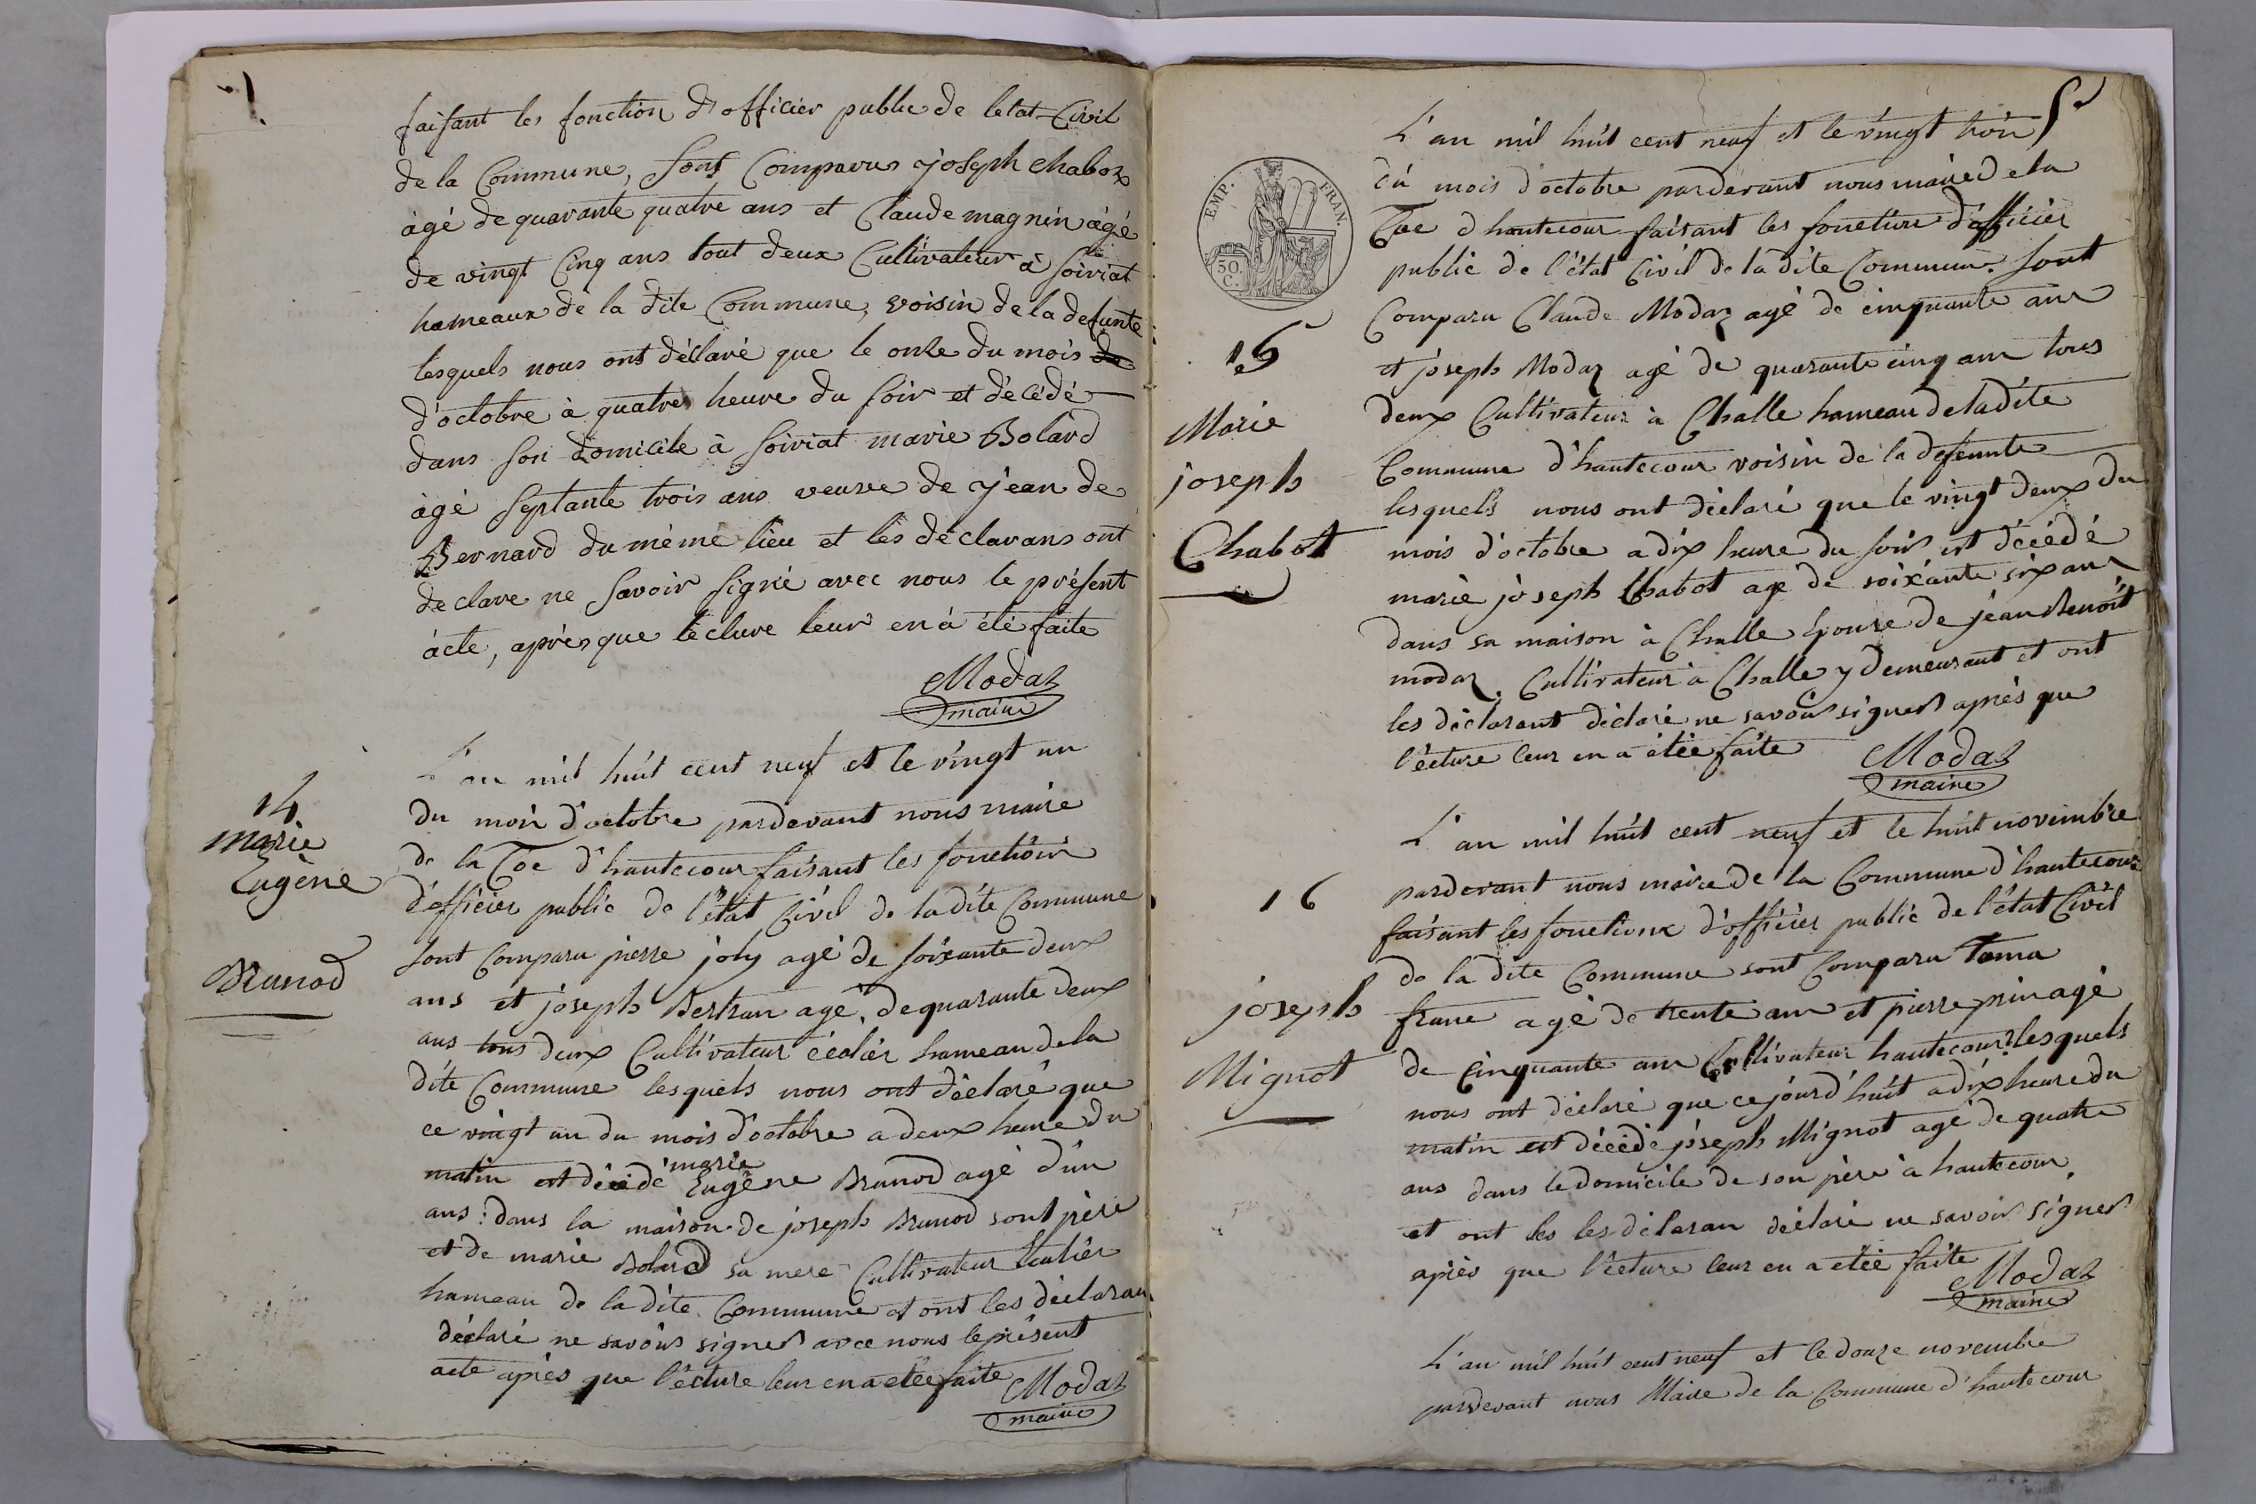 faisant les fonction d'officier public de letat Civil
de la Commune, sont Comparus joseph Chabot
âgé de quarante quatre ans et Claude magnin âgé
de vingt cinq ans tout deux Cultivateur à soiriat
hameaux de la dite Commune, voisin de la defunte
lesquels nous ont déclaré que le onze du mois de
d'octobre à quatre heure du soir et décédé
dans son domicile à soiriat marie Bolard
àgé septante trois ans veuve de jean de
Bernard du même lieu et les déclarans ont
declare ne savoir signé avec nous le présent
àcte, après que lecture leur en à été faite
Modaz
maire
14
marie
Eugène
Brunod
L'an mil huit cent neuf et le vingt un
du mois d'octobre pardevant nous maire
de la Coe d'hautecour faisant les fonctions
d'officier public de l'état Civil de la dite Commune
sont Comparu pierre joly agé de soixante deux
ans et joseph Bertran agé de quarante deux
ans tous deux Cultivateur hameau de la
dite Commune lesquels nous ont déclaré que
ce vingt un du mois d'octobre a deux heure du
matin est décédé marie Eugène Brunod agé d'un
ans : dans la maison de joseph Brunod sont père
et de marie Bolard sa mere Cultivateur
hameau de la dite Commune et ont les déclaran
déclaré ne savoir signer avec nous le présent
acte après que lecture leur en a etée faite
Modaz
maire
5
EMP. FRAN.
50 C.
15
Marie
joseph
Chabot
L'an mil huit cent neuf et le vingt trois
du mois d'octobre pardevant nous maire de la
Coe d'hautecour faisant les fonction d'officier
public de l'état Civil de la dite Commune. sont
Comparu Claude Modaz agé de cinquante ans
et joseph Modaz agé de quarante cinq ans tous
deux Cultivateur à Challe hameau de la dite
Commune d'hautecour voisin de la defunte
lesquels nous ont déclaré que le vingt deux du
mois d'octobre a dix heure du soir est décédé
marie joseph Chabot agé de soixante six ans
dans sa maison à Challe Epouse de jean Benoit
modaz, Cultivateur à Challe y demeurant et ont
les déclarant déclaré ne savoir signer après que
lécture leur en a étée faite
Modaz
maire
16
joseph
Mignot
L'an mil huit cent neuf et le huit novembre
pardevant nous maire de la Commune d'hautecour
faisant les fonctions d'officier public de l'état Civil
de la dite Commune sont Comparu Toma
franc agé de trente ans et pierre prin agé
de cinquante ans Cultivateur hautecour lesquels
nous ont déclaré que cejourd'huit a dix heure du
matin est décédé joseph Mignot agé de quatre
ans dans le domicile de son père à hautecour
et ont les les déclaran déclaré ne savoir signer
après que lécture leur en a étée faite
Modaz
maire
L'an mil huit cent neuf et le douze novembre
pardevant nous Maire de la Commune d'hautecour